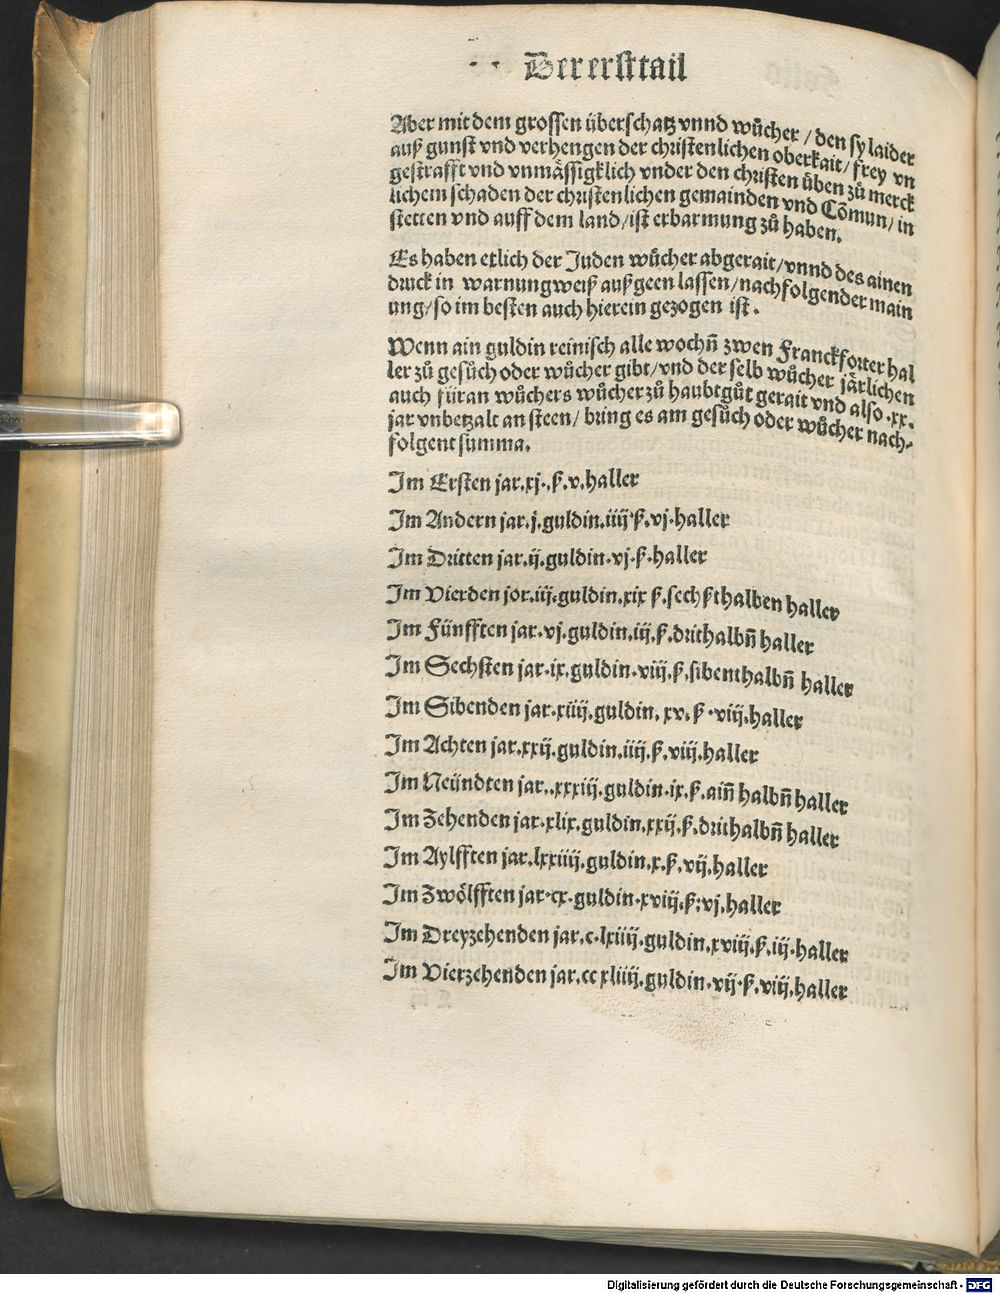 Der erst tail
Aber mit dem grossen überschatz vnnd wůcher / den sy laider
auß gunst vnd verhengen der christenlichen oberkait / frey vn
gestrafft vnd vnmässigklich vnder den christen üben zů merck
lichem schaden der christenlichen gemainden vnd Cōmun / in
stetten vnd auff dem land / ist erbarmung zů haben.
Es haben etlich der Juden wůcher abgerait / vnnd des ainen
druck in warnungweiß außgeen lassen / nachfolgender main
ung / so im besten auch hierein gezogen ist.
Wenn ain guldin reinisch alle wochn̄ zwen Franckforter hal
ler zů gesůch oder wůcher gibt / vnd der selb wůcher järlichen
auch füran wůchers wůcher zů haubtgůt gerait vnd also .xx.
jar vnbetzalt an steen / bring es am gesůch oder wůcher nach-
folgent summa.
Im Ersten jar .xj. ß. v. haller
Im Andern jar .j. guldin .iiij ß. vj. haller
Im Dritten jar .ij. guldin. vj. ß. haller
Im Vierden jor .iij. guldin .xix ß. sechßthalben haller
Im Fünfften jar .vj. guldin .iij. ß. drithalbn̄ haller
Im Sechsten jar .ix. guldin. viij. ß. sibenthalbn̄ haller
Im Sibenden jar .xiiij. guldin. xv. ß. viij. haller
Im Achten jar .xxij. guldin .iiij. ß. viij. haller
Im Neündten jar ..xxxiij. guldin .ix. ß. ain̄ halbn̄ haller
Im Zehenden jar .xlix. guldin .xxij. ß. drithalbn̄ haller
Im Aylfften jar .lxxiiij. guldin .x. ß. vij. haller
Im Zwölfften jar .cx. guldin .xviij. ß. vj. haller
Im Dreyzehenden jar .c. lxiiij. guldin .xviij. ß. iij. haller
Im Vierzehenden jar .cc xliiij. guldin .vij. ß. viij. haller
Digitalisierung gefördert durch die Deutsche Forschungsgemeinschaft - DFG